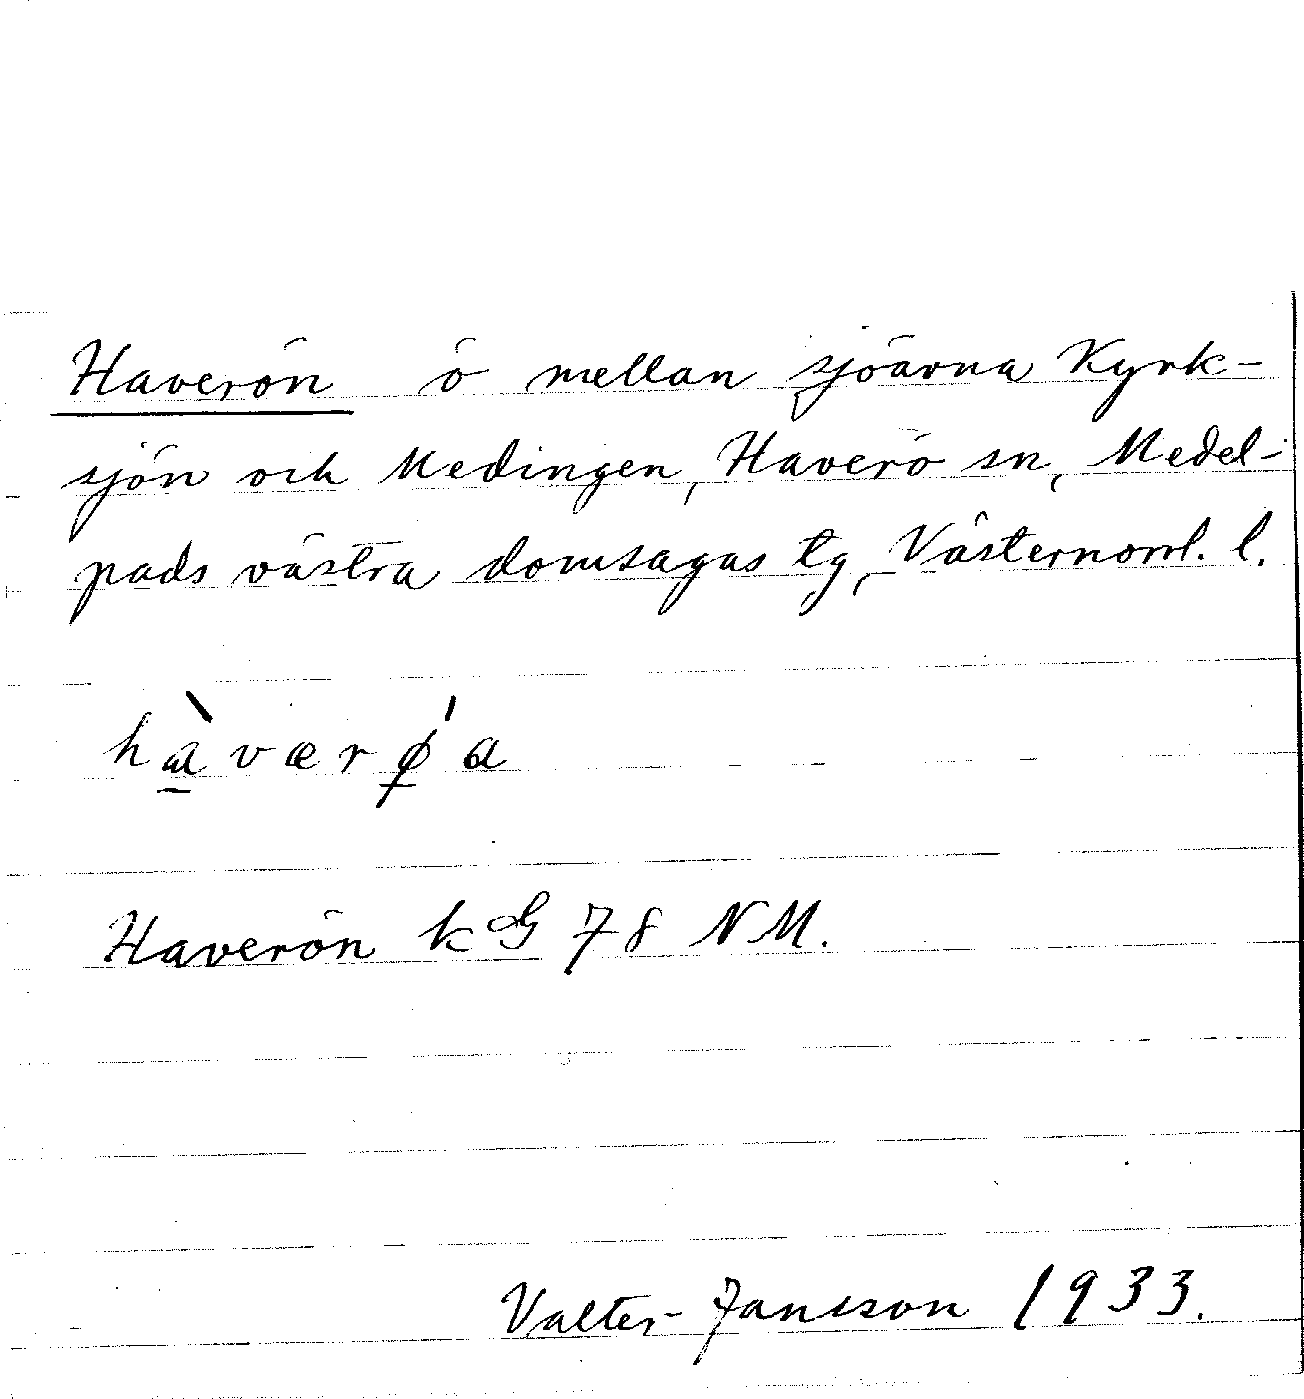 Haverön ö mellan sjöarna Kyrk-
sjön och Medingen, Haverö sn, Medel-
pads västra domsagas tg, Västernorrl. l.
hàværǿa
Haverön kG 78 NM.
Valter Jansson 1933.